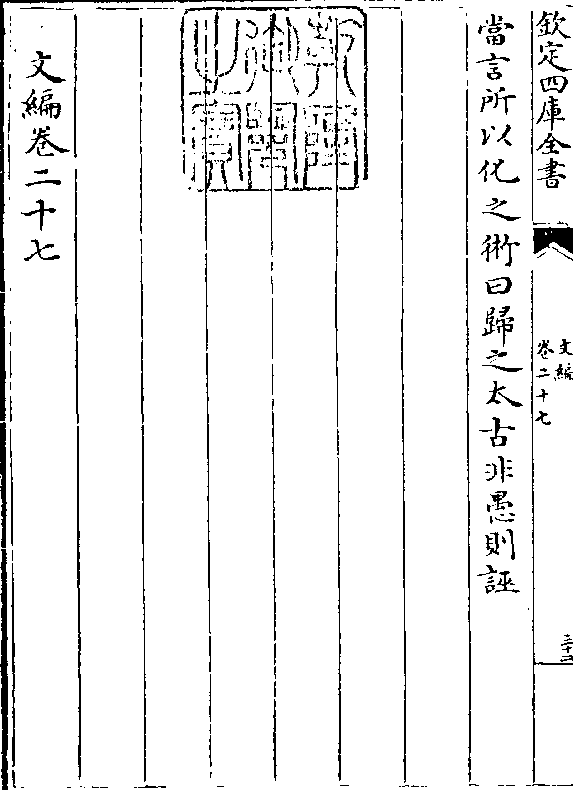 欽定四庫全書
文編
卷二十七
當言所以化之術曰歸之太古非愚則誣
乾隆
御覽
之寶
文編卷二十七